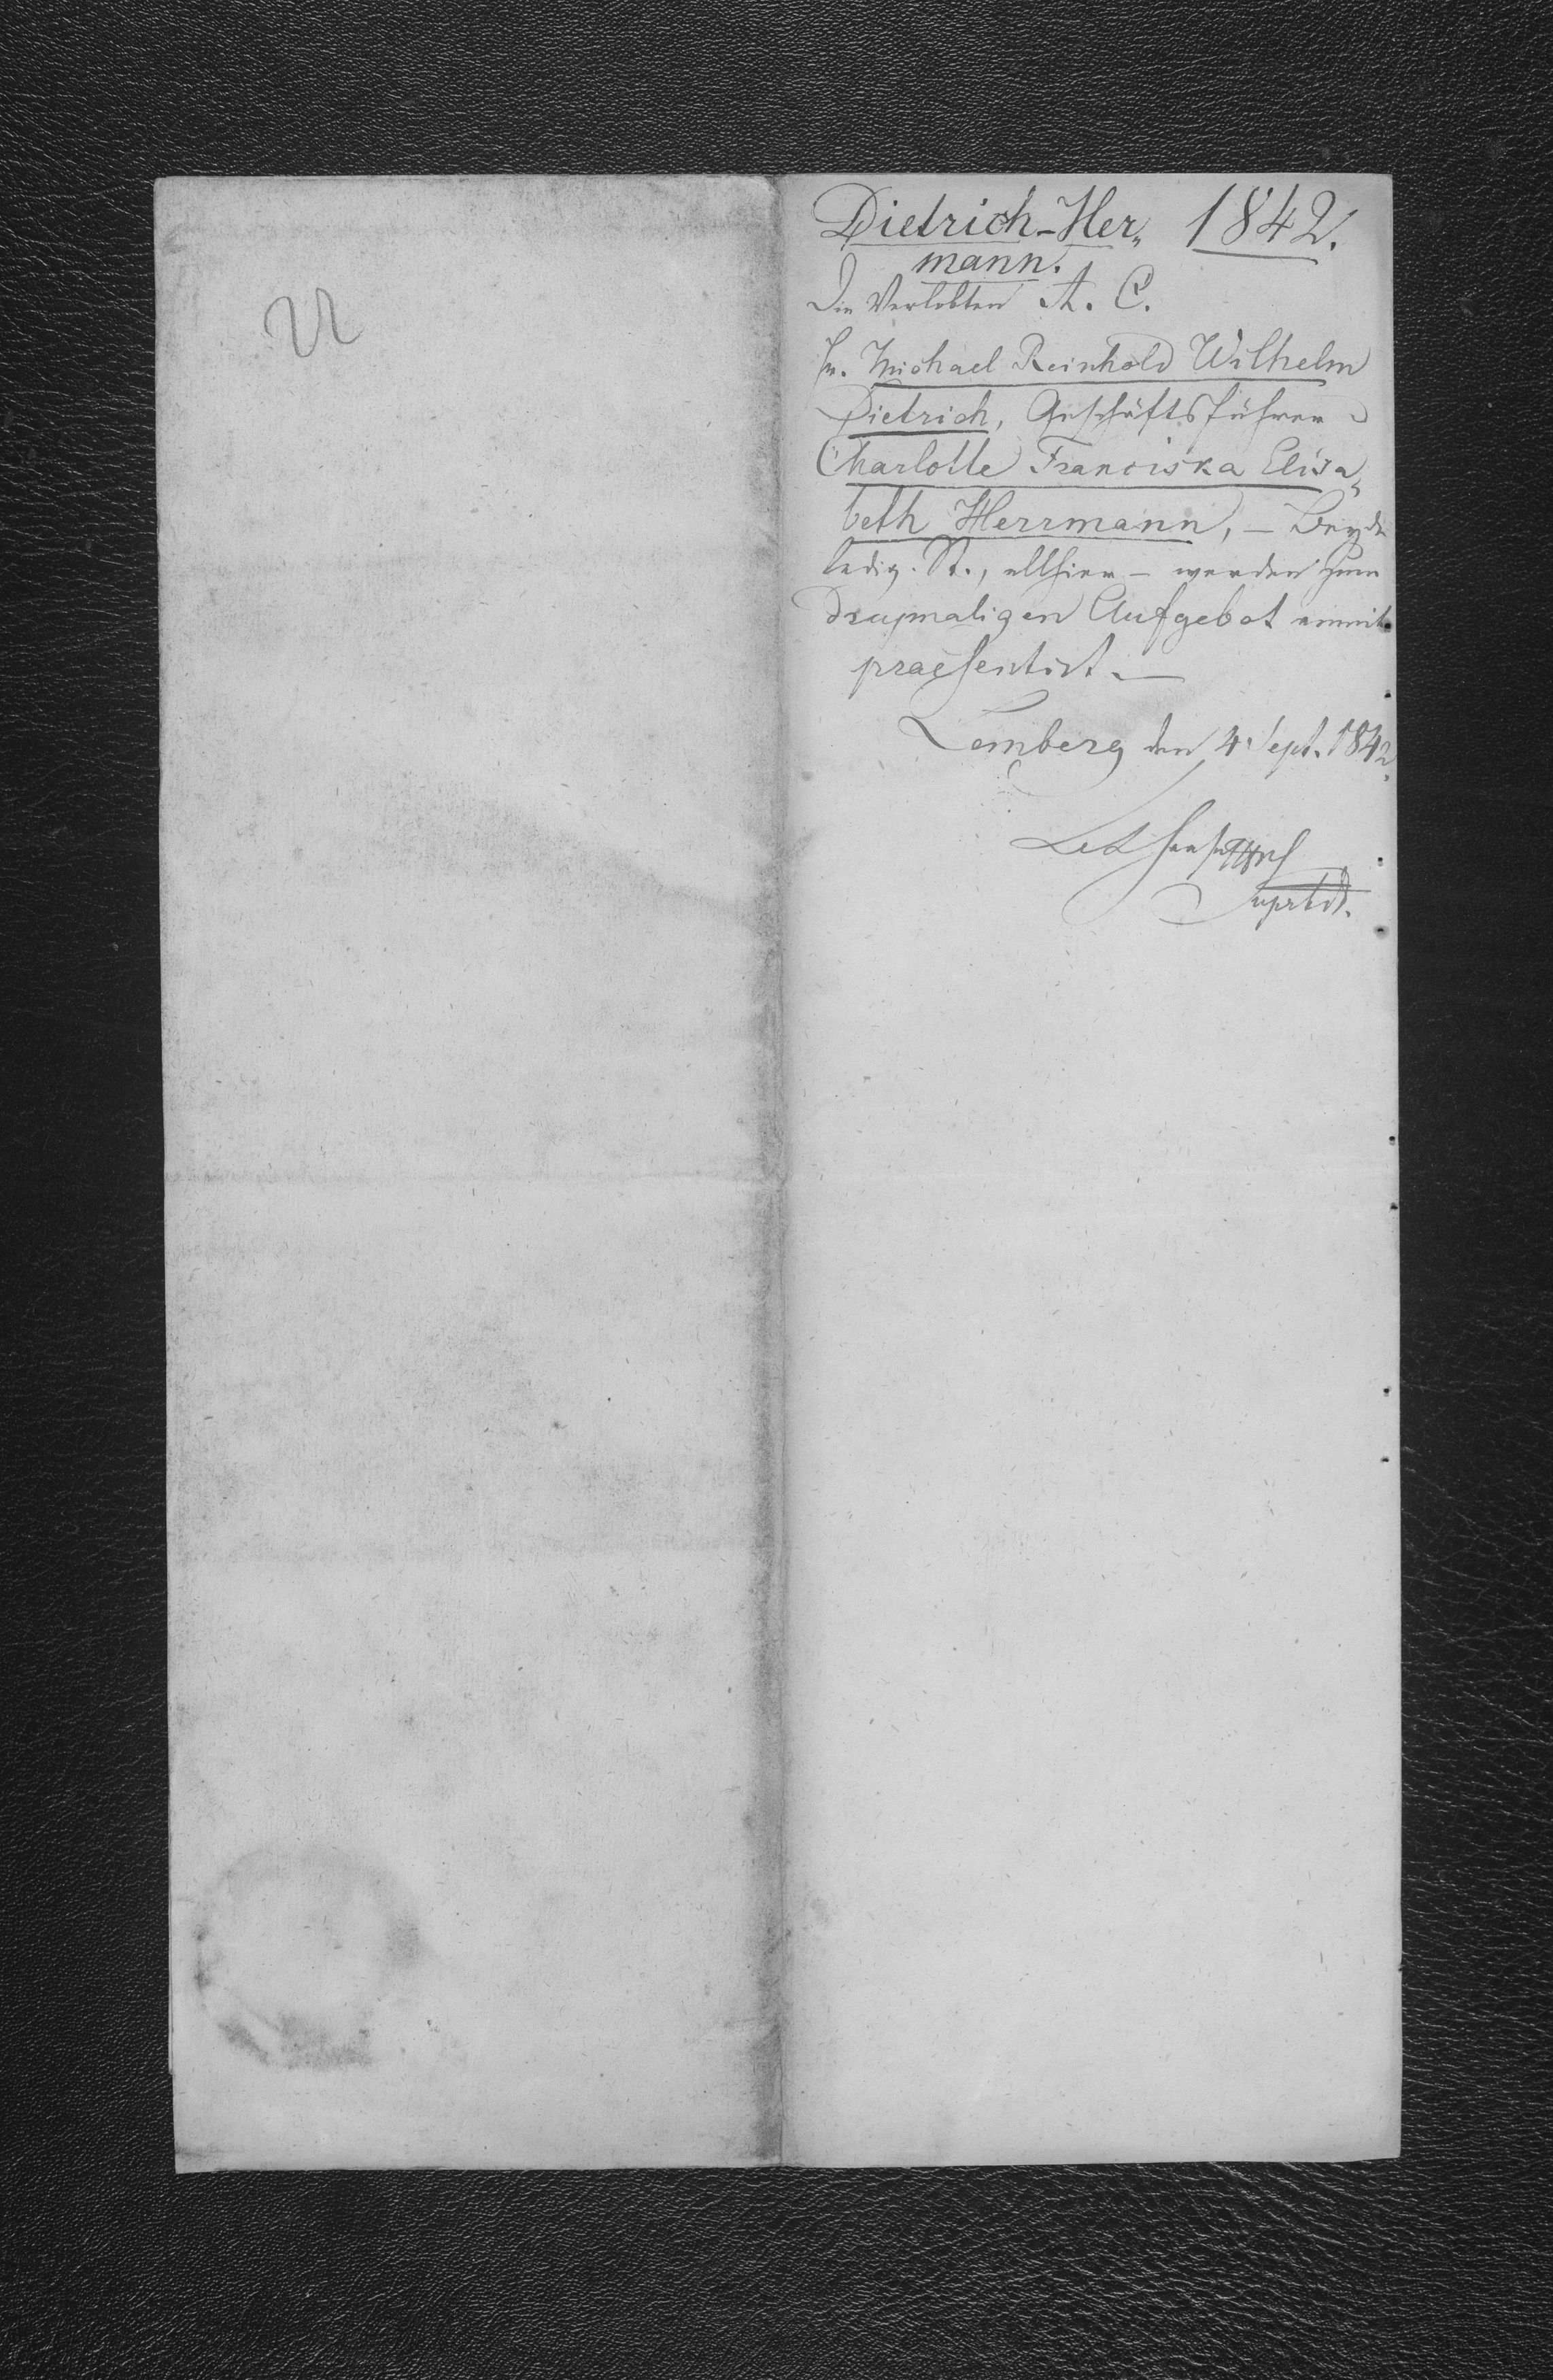 Dietrich-Her„ 1842.
mann.
Die Verlobten A. C.
Hr. Michael Reinhold Wilhelm
Dietrich, Geschäftsführer
Charlotte Franciska Elisa„
beth Herrmann, – Beyde
ledig. St., allhier – werden zum
dreymaligen Aufgebot anmit
praesentirt. —
Lemberg den 4 Sept. 1842.
Suprtdt.